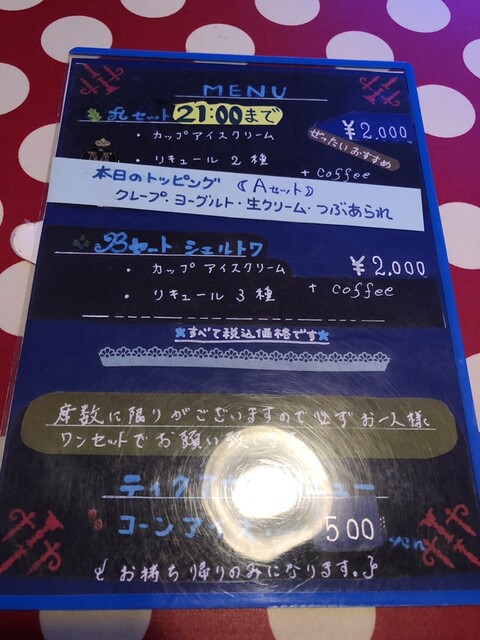 MENU
Aセット 21:00まで
・カップアイスクリーム
¥2,000
ぜったいおすすめ
・リキュール2種
+ coffee
本日のトッピング 《Aセット》
クレープ・ヨーグルト・生クリーム・つぶあられ
Bセット シェルトワ
・カップアイスクリーム
¥2,000
・リキュール3種
+ coffee
★すべて税込価格です★
座数に限りがございますので必ずお一人様
ワンセットでお願い致します
ティクア
ュー
コーンアイス
500
お持ち帰りのみになります。